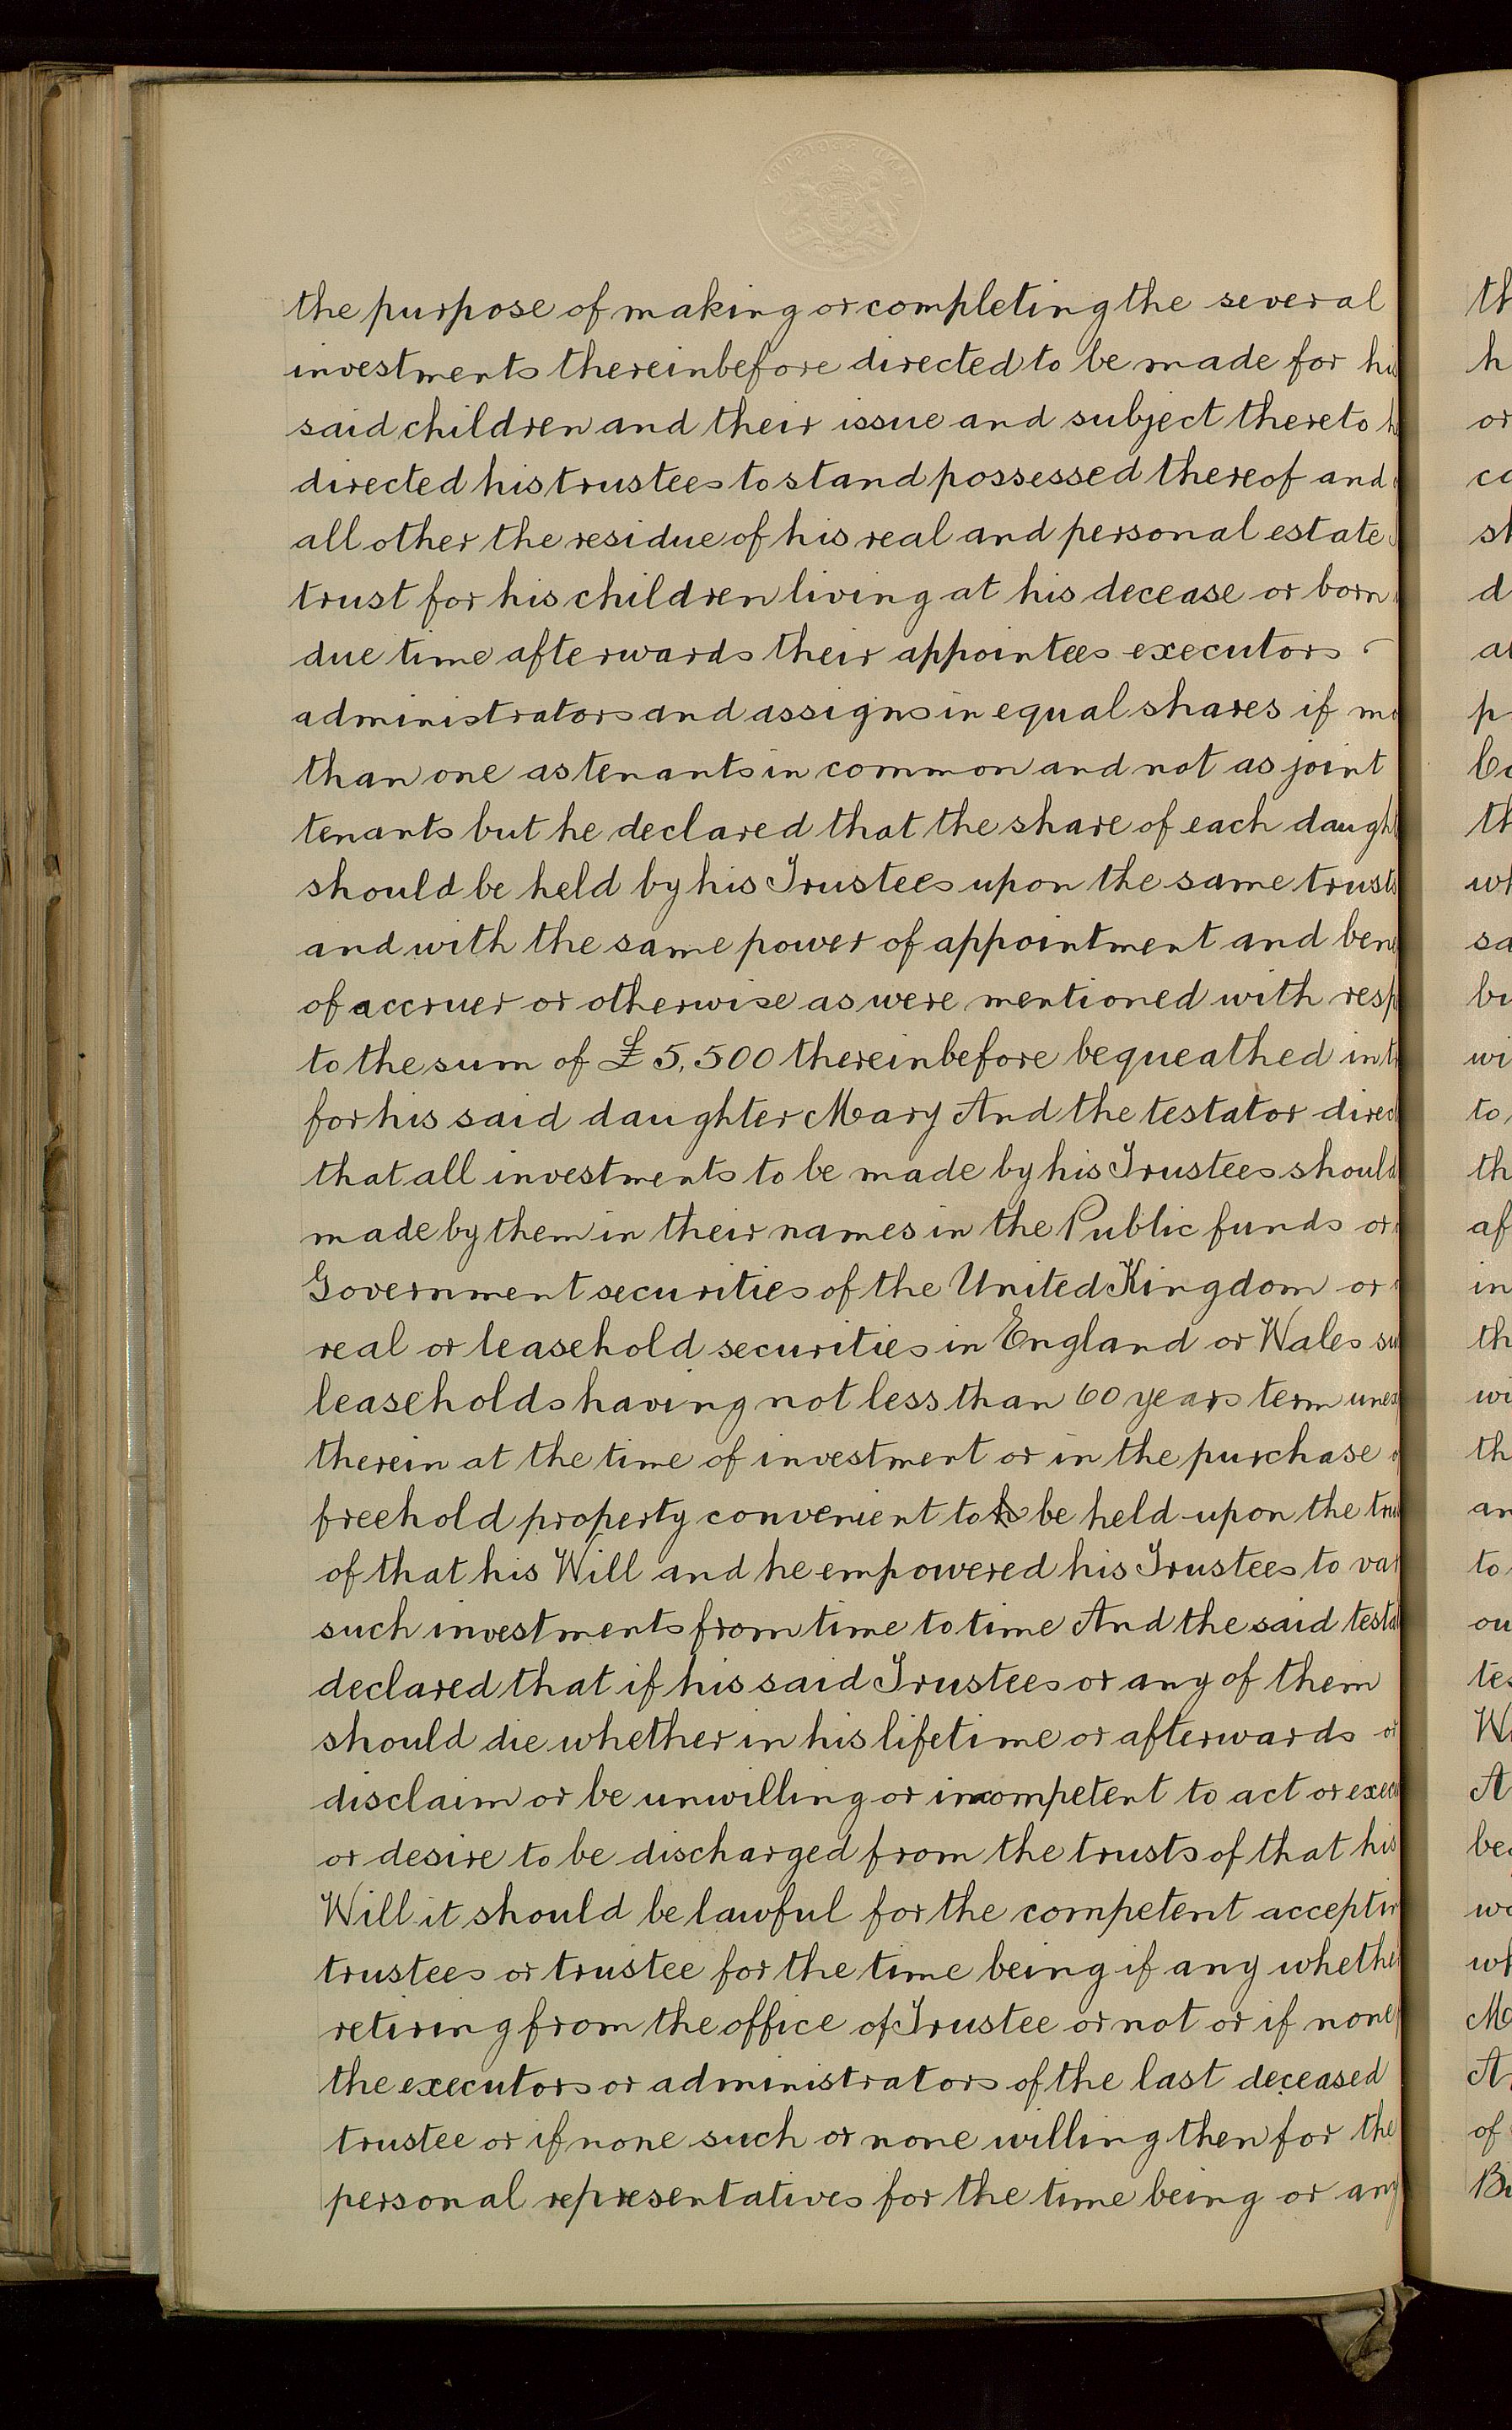 the purpose of making or completing the several
investments thereinbefore directed to be made for his
said children and their issue and subject thereto
directed his trustees to stand possessed thereof and
all other the residue of his real and personal estate
trust for his children living at his decease or born
due time afterwards their appointees executors
administrators and assigns in equal shares if mo
than one as tenants in common and not as joint
tenants but he declared that the share of each daugh
should be held by his Trustees upon the same trusts
and with the same power of appointment and ben
of accruer or otherwise as were mentioned with resp
to the sum of £5,500 thereinbefore bequeathed in t
for his said daughter Mary And the testator direc
that all investments to be made by his Trustees should
made by them in their names in the Public funds or
Government securities of the United Kingdom or
real or leasehold securities in England or Wales su
leaseholds having not less than 60 years term unex
therein at the time of investment or in the purchase o
freehold property convenient to be held upon the tru
of that his Will and he empowered his Trustees to var
such investments from time to time And the said testa
declared that if his said Trustees or any of them
should die whether in his lifetime or afterwards or
disclaim or be unwilling or incompetent to act or execu
or desire to be discharged from the trusts of that his
Will it should be lawful for the competent acceptin
trustees or trustee for the time being if any whether
retiring from the office of Trustee or not or if none
the executors or administrators of the last deceased
trustee or if none such or none willing then for the
personal representatives for the time being or any
th
h
or
co
sh
d
at
p
be
th
wh
sa
bu
wi
to
th
af
in
th
wi
th
an
to
ou
tes
W
A
bec
wo
wh
Mo
A
of
Bu